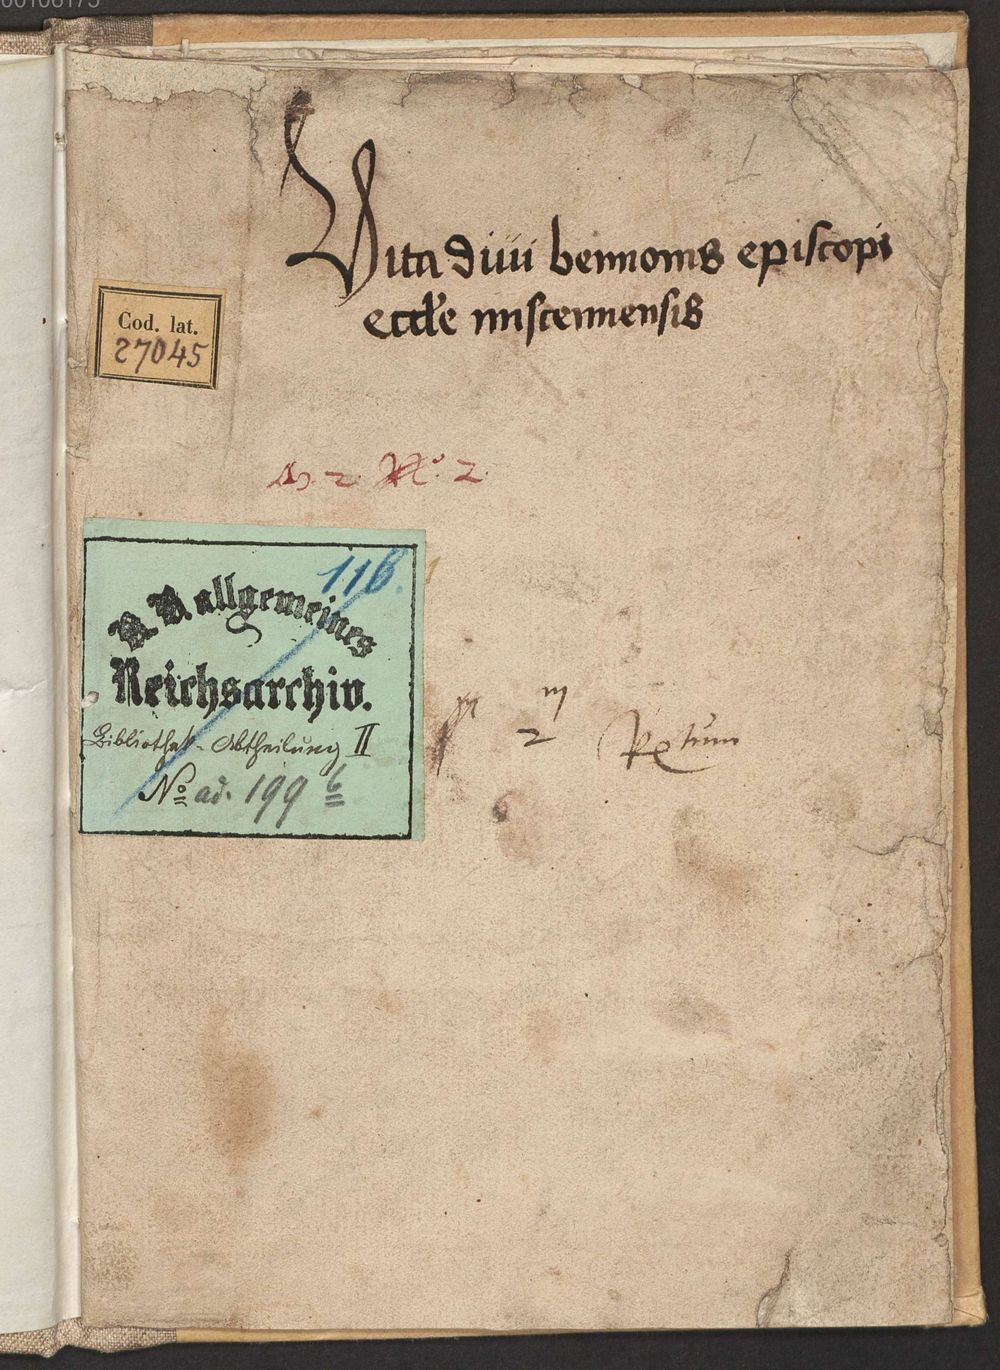 Vita diui bennonis episcopi
eccl'e miscennensis
Cod. lat.
27045
N°. 2.
116.
K B allgemeines
Reichsarchiv.
Bibliothek-Abtheilung II
No ad. 199 6
m
2